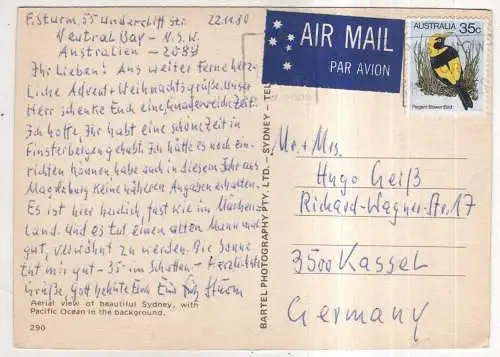 F. Sturm, 55 Undercliff Str. 22.11.80
Neutral Bay - N.S.W.
Australien - 2089
Ihr Lieben! Aus weiter Ferne herz-
liche Advent + Weihnachtsgrüße. Unser
Herr schenke Euch eine gnadenreiche Zeit.
Ich hoffe, Ihr habt eine schöne Zeit in
gehabt. Ich hätte es noch ein-
richten können, habe auch in diesem Jahr aus
Magdeburg keine näheren Angaben erhalten.
Es ist hier herrlich, fast wie im Märchen-
land. Und es tut einen alten Mann mal
gut, verwöhnt zu werden. Die Sonne
tut mir gut - 35° im Schatten - Herzlichste
Grüße, Gott behüte Euch Euer Fritz Sturm
Aerial view of beautiful Sydney, with
Pacific Ocean in the background.
290
BARTEL PHOTOGRAPHY PTY. LTD. — SYDNEY — TEL
AIR MAIL
PAR AVION
AUSTRALIA 35c
Regent Bower-Bird
Mr. + Mrs.
Hugo Geiß
Richard-Wagner-Str. 17
3500 Kassel
Germany